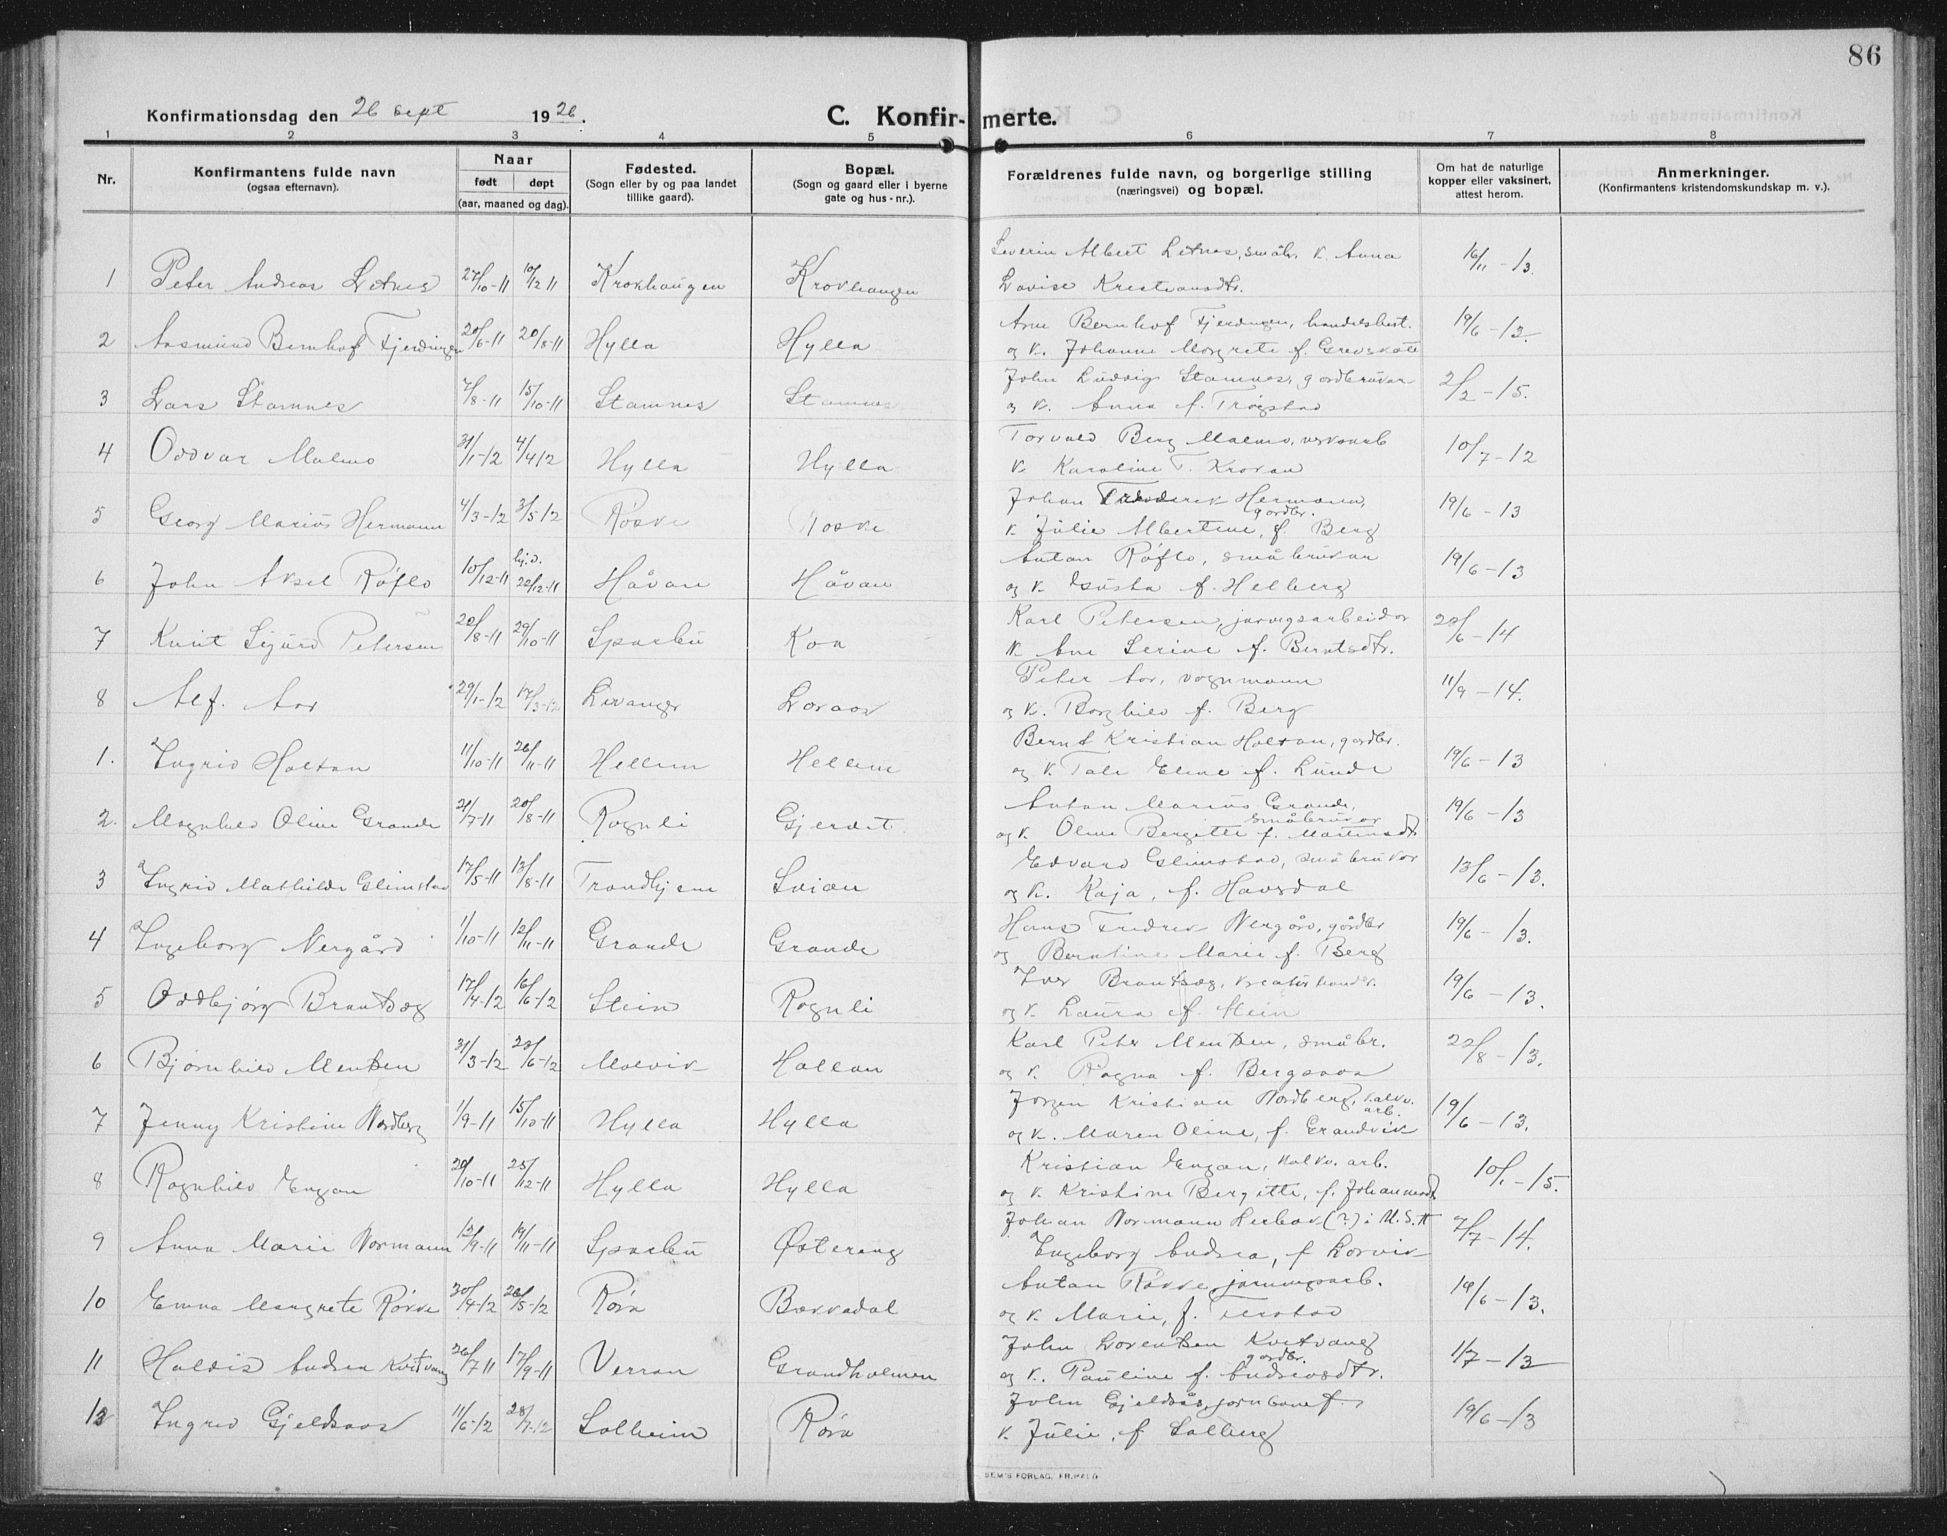 86
Konfirmationsdag den 26 sept 1926.
C. Konfirmerte.
1 2 3 4 5 6 7 8
Nr. Konfirmantens fulde navn (ogsaa efternavn). Naar født døpt (aar, maaned og dag). Fødested. (Sogn eller by og paa landet tillike gaard). Bopæl. (Sogn og gaard eller i byerne gate og hus-nr.). Forældrenes fulde navn, og borgerlige stilling (næringsvei) og bopæl. Om hat de naturlige kopper eller vaksinert, attest herom. Anmerkninger. (Konfirmantens kristendomskundskap m. v.).
Severin Albert Letnes, småbr. k. Anna
1 Peter Andreas Letnes 27/10-11 10/12 11 Krokhaugen Krokhaugen Lovise Kristiansdtr. 16/11-13.
Arne Bernhof Fjerdingen, handelsbest.
2 Aasmund Bernhof Fjerdingen 20/6-11 20/8-11 Hylla Hylla og k. Johanne Margrete f. Grevskott 19/6-13.
John Ludvig Stamnes, gårdbruker
3 Lars Stamnes 7/8-11 15/10-11 Stamnes Stamnes og k. Anna f. Trøgstad 2/2-15.
Torvald Berg Malmo, verksarb
4 Oddvar Malmo 31/1-12 4/4 12 Hylla Hylla k. Karoline T. Krovan 10/7-12
Johan Frederik Hermann, gårdbr.
5 Georg Marius Hermann 4/3-12 3/5 12 Roske Roske k. Julie Albertine, f. Berg 19/6-13
Anton Røflo, småbruker
6 John Aksel Røflo 10/12-11 hj.d. 22/12-11 Håvan Håvan og k. Gusta f. Helberg 19/6-13
Karl Petersen, jarvegsarbeider
7 Knut Sigurd Petersen 20/8-11 29/10-11 Sparbu Koa k. Ane Serine f. Berntsdtr. 20/6-14
Peter Aar, vognmann
8 Alf. Aar 29/1-12 17/3-12 Levanger Loraas og k. Borghild f. Berg 11/9-14.
Bernt Kristian Holtan, gårdbr.
1. Ingrid Holtan 11/10-11 26/11-11 Hellem Hellem og k. Tale Eline f. Lunde 19/6-13
Anton Marius Grande, småbruker
2. Magnhild Oline Grande 21/7-11 20/8-11 Rognli Gjerdet og k. Oline Bergitte f. Martinsdtr 19/6-13
Edvard Glimstad, småbruker
3 Ingrid Mathilde Glimstad 17/5-11 13/8-11 Trondhjem Svian og k. Kaja, f. Havsdal 13/6-13.
Hans Fredrik Nergård, gårdbr
4 Ingeborg Nergård 1/10-11 12/11-11 Grande Grande og Berntine Marie f. Berg 19/6-13.
Iver Brandtzæg, kreaturhandl.
5 Oddbjørg Brandtzæg 17/4-12 16/6-12 Stein Rognli og k. Laura f. Stein 19/6-13.
Karl Peter Mentzen, småbr.
6 Bjørnhild Mentzen 31/3-12 23/6-12 Malvik Hallan og k. Ragna f. Bergsaas 22/8-13.
Jørgen Kristian Nordberg, kalkv. arb.
7 Jenny Kristine Nordberg 1/9-11 15/10-11 Hylla Hylla og k. Maren Oline, f. Grandvik 19/6-13.
Kristian Engan, kalkv. arb.
8 Ragnhild Engan 20/10-11 25/12-11 Hylla Hylla og k. Kristine Bergitte, f. Johannesdt. 10/1-15.
Johan Normann (?) i U.S.A
9 Anna Marie Normann 12/9-11 19/11-11 Sparbu Østereng Ingeborg Andrea, f Lorvik 7/7-14.
Anton Røkke, jarnvegsarb.
10 Emma Margrete Røkke 30/4-12 26/5-12 Røra Bækkadal og k. Marie, f. Terstad 19/6-13.
John Lorentzen Kvitvang gårdbr.
11 Haldis Andrea Kvitvang 26/7 11 17/9-11 Verran Grandholmen og k. Pauline f. Andreasdtr. 1/7-13
John Gjeldsås, jernbanef.
12 Ingrid Gjeldsaas 11/6-12 28/7-12 Solheim Røra k. Julie, f Solberg 19/6-13
SEM'S FORLAG, FR.HALD